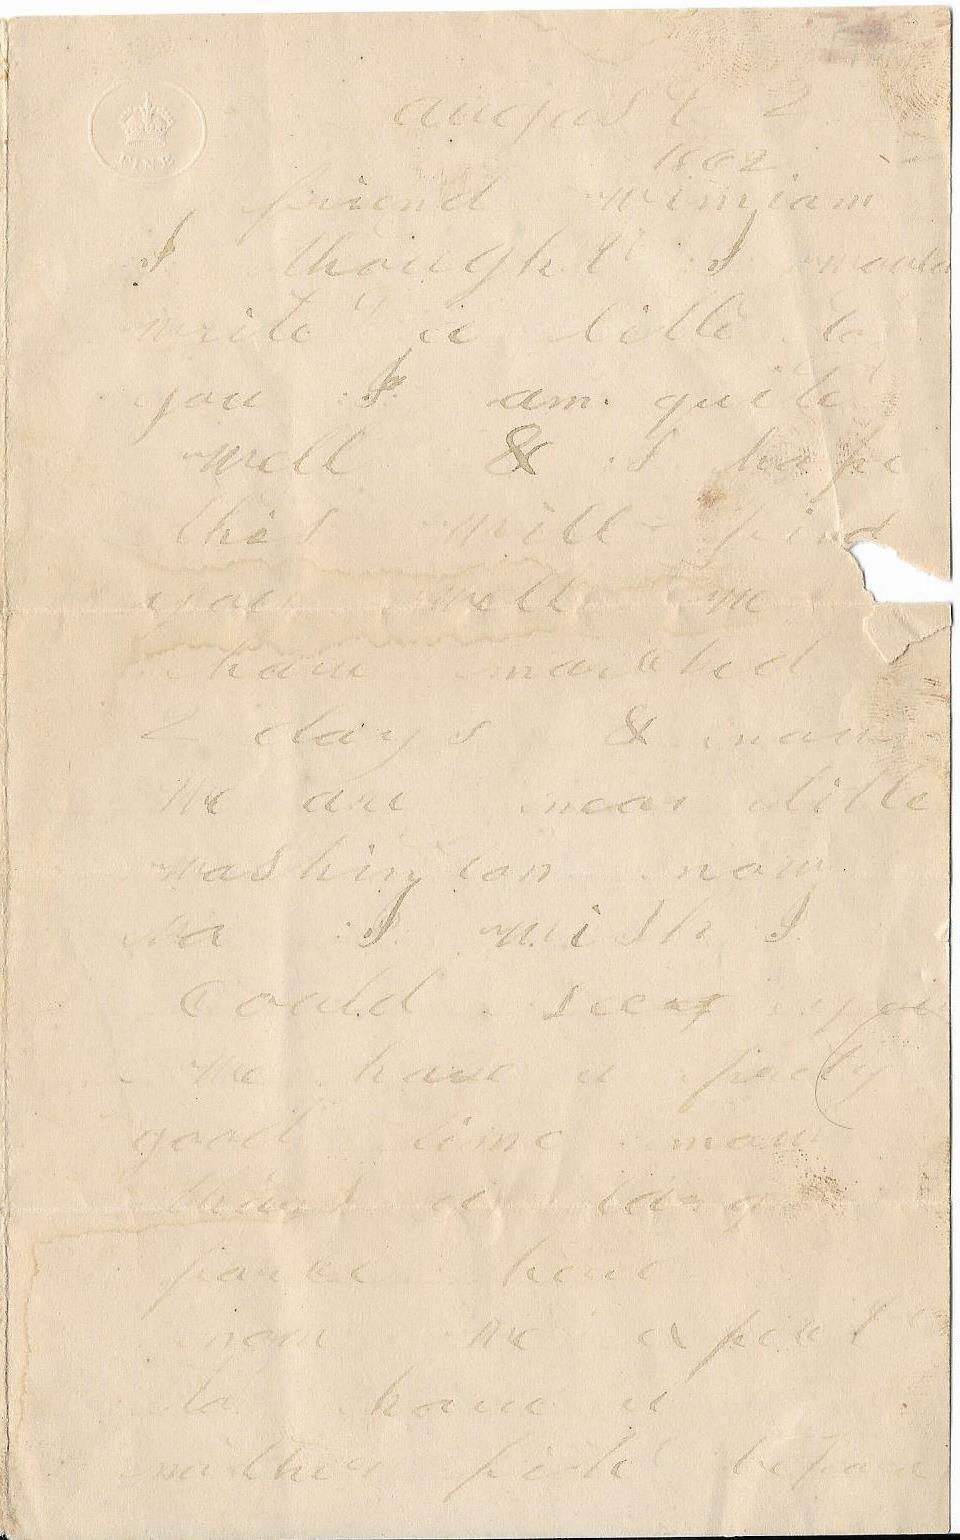 FINE
august 2
1862
friend Wimiam
I thought I would
write a little to
you I am quite
well & I hope
this will find
you well we
have marched
2 days & now
we are near little
washington now
va I wish I
Could see you
we have a prety
good time now
thars a larg
forse here
now we expect
to have a
nuther fite before